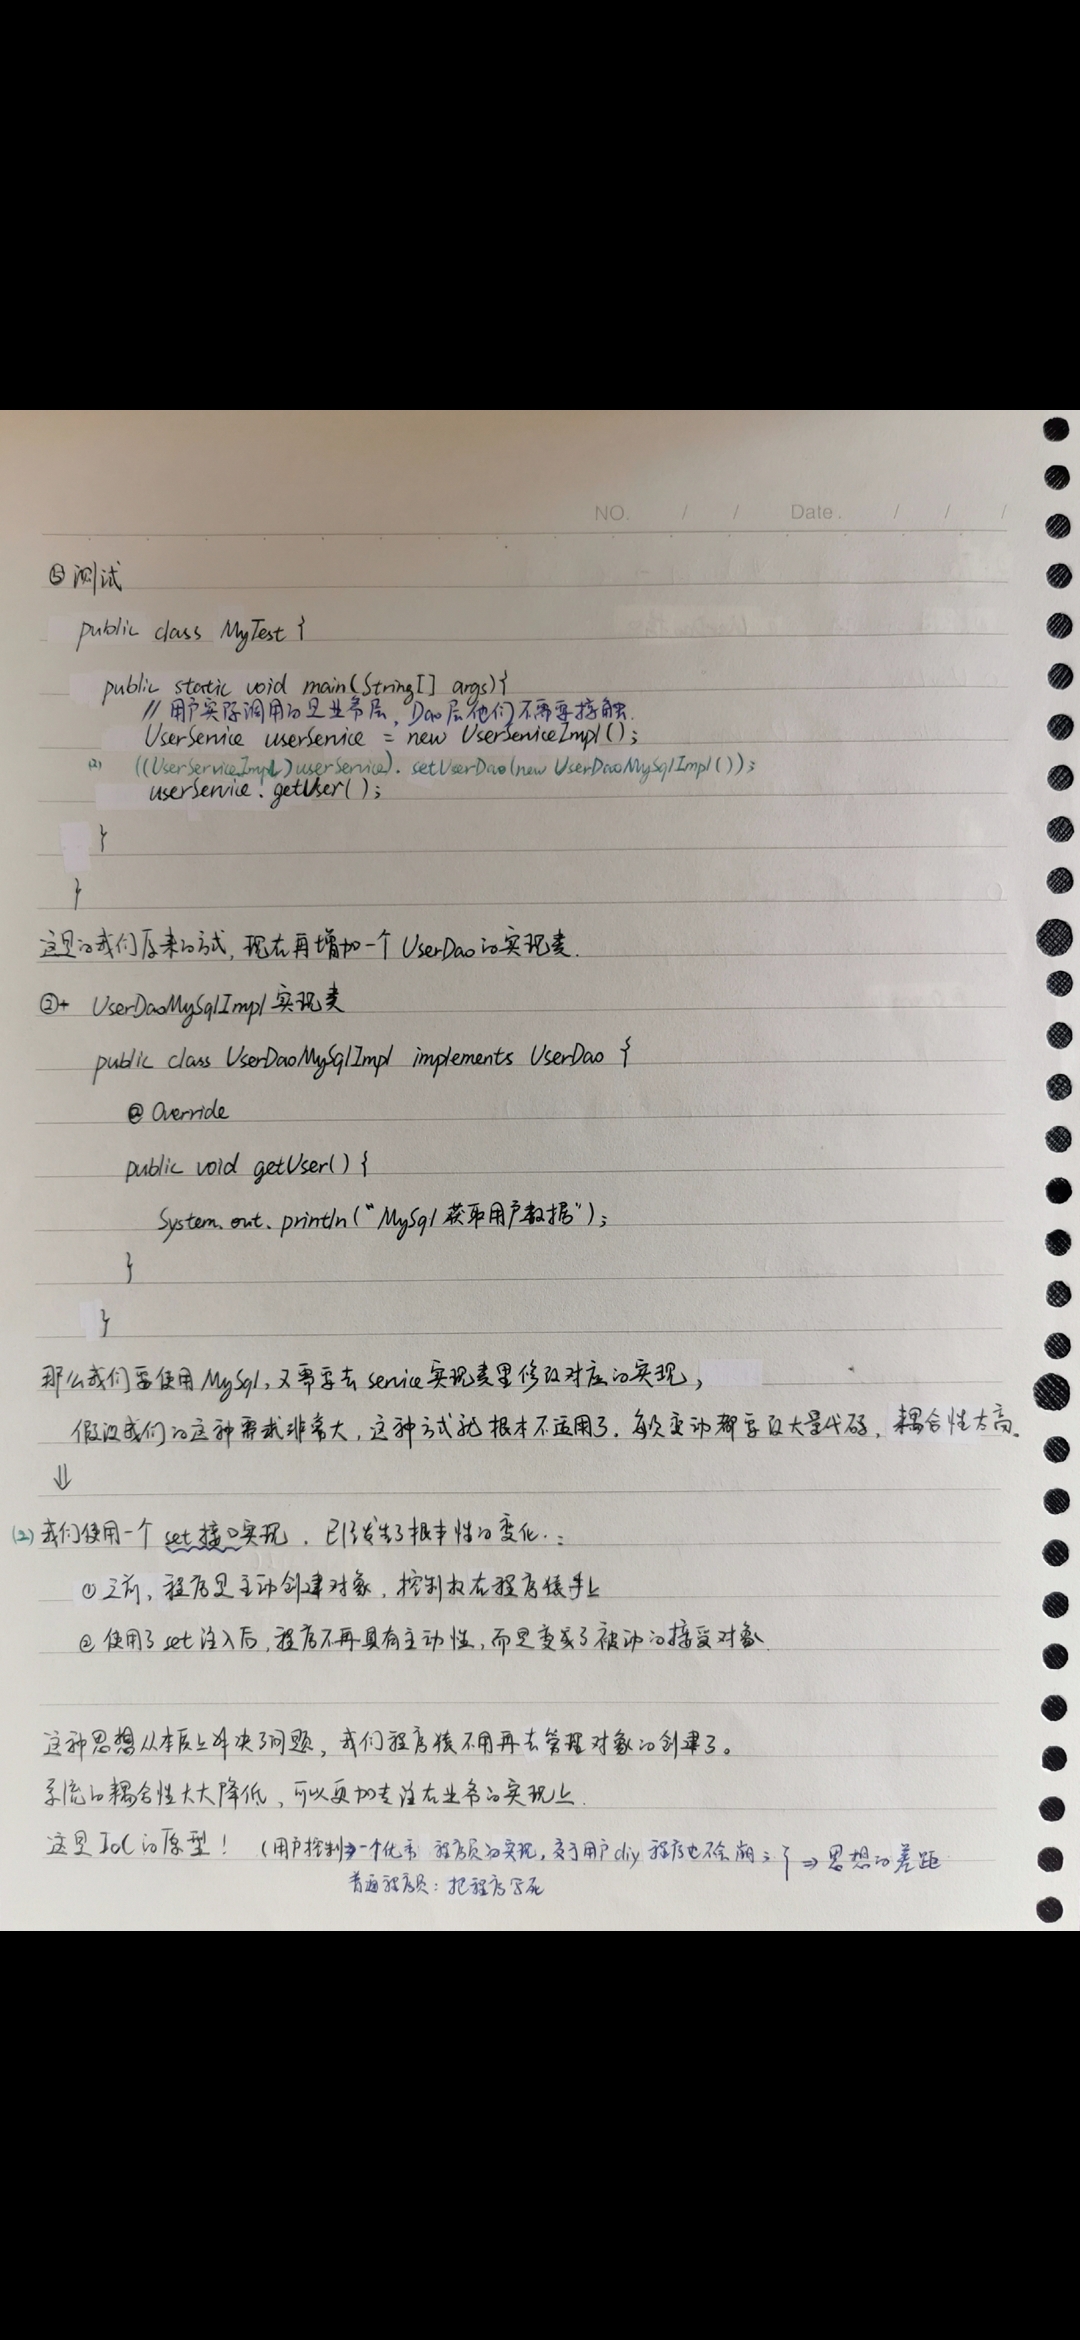 NO. / / Date. / / /
⑤ 测试
public class MyTest {
public static void main(String[] args){
// 用户实际调用的是业务层，Dao层他们不需要接触.
UserService userService = new UserServiceImpl();
(2) ((UserServiceImpl)userService).setUserDao(new UserDaoMySqlImpl());
userService.getUser();
}
}
这是我们原来的方式, 现在再增加一个 UserDao的实现类.
②+ UserDaoMySqlImpl 实现类
public class UserDaoMySqlImpl implements UserDao {
@Override
public void getUser() {
System.out.println("MySql 获取用户数据");
}
}
那么我们要使用MySql, 又需要去service实现类里修改对应的实现,
假设我们的这种需求非常大, 这种方式就根本不适用了, 每次变动都要改大量代码, 耦合性太高。
⇓
(2) 我们使用一个 set接口实现, 已经发生了根本性的变化:
① 之前, 程序是主动创建对象, 控制权在程序猿手上
② 使用了set注入后, 程序不再具有主动性, 而是变成了被动的接受对象
这种思想从本质上解决了问题, 我们程序猿不用再去管理对象的创建了。
系统的耦合性大大降低, 可以更加专注在业务的实现上.
这是IoC的原型! (用户控制→一个优秀 程序员的实现, 用户diy 程序也不会崩 } ⇒ 思想的差距
普通程序员: 把程序写死